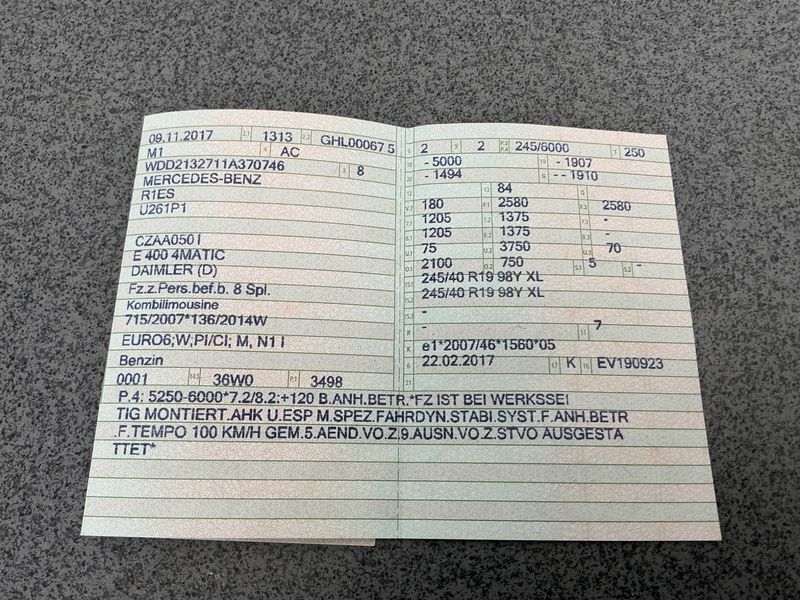 09.11.2017 2.1 1313 2.2 GHL00067 5
M1 4 AC
WDD2132711A370746 3 8
MERCEDES-BENZ
R1ES
U261P1
CZAA050I
E 400 4MATIC
DAIMLER (D)
Fz.z.Pers.bef.b. 8 Spl.
Kombilimousine
715/2007*136/2014W
EURO6;W,PI/CI; M, N1 I
Benzin
0001 14.1 36W0 P.1 3498
2 9 2 P.2 P.4 245/6000 T 250
- 5000 19 - 1907
- 1494 G - - 1910
13 84 Q
V.7 180 F.1 2580 F.2 2580
7.1 1205 7.2 1375 7.3 -
8.1 1205 8.2 1375 8.3 -
U.1 75 U.2 3750 U.3 70
O.1 2100 O.2 750 S.1 5 S.2 -
15.1 245/40 R19 98Y XL
15.2 245/40 R19 98Y XL
15.3 -
R - 11 7
K e1*2007/46*1560*05
6 22.02.2017 17 K 16 EV190923
21
P.4: 5250-6000*7.2/8.2:+120 B.ANH.BETR.*FZ IST BEI WERKSSEI
TIG MONTIERT.AHK U.ESP M.SPEZ.FAHRDYN.STABI.SYST.F.ANH.BETR
.F.TEMPO 100 KM/H GEM.5.AEND.VO.Z.9.AUSN.VO.Z.STVO AUSGESTA
TTET*